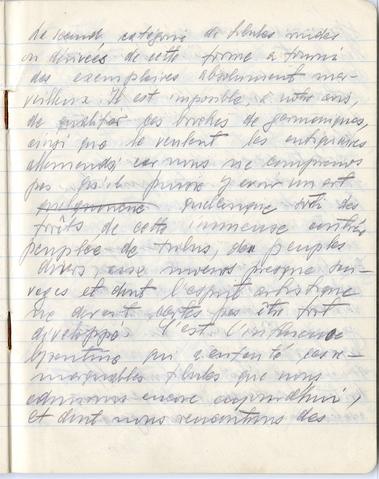 La seconde catégorie de fibules rondes
ou dérivées de cette forme a fourni
des exemplaires absolument mer-
veilleux. Il est impossible, à notre avis,
de qualifier ces broches de germaniques,
ainsi que le veulent les antiquaires
allemands car nous ne comprenons
pas qu'il puisse y avoir un art
quelconque sorti des
forêts de cette immense contrée
peuplée de tribus, de peuples
divers, assez presque sau-
vages et dont l'esprit artistique
ne devait certes pas être fort
développé. C'est l'influence
byzantine qui a enfanté ces re-
marquables fibules que nous
encore aujourd'hui,
et dont nous rencontrons des